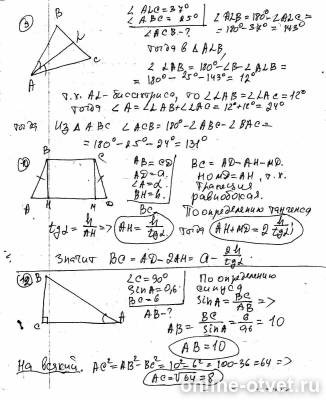 9
∠ALC = 37°
∠ABC = 25°
∠ACB - ?
∠ALB = 180° - ∠ALC =
= 180° - 37° = 143°
B
L
C
A
тогда в ΔALB,
∠LAB = 180° - ∠B - ∠ALB =
= 180° - 25° - 143° = 12°
т.к. AL - биссектриса, то ∠LAB = ∠LAC = 12°
тогда ∠A = ∠LAB + ∠LAC = 12° + 12° = 24°
тогда Из ΔABC ∠ACB = 180° - ∠ABC - ∠BAC =
= 180° - 25° - 24° = 131°
10
B C
A H M D
AB = CD
AD = a
∠A = α
BH = h
BC
BC = AD - AH - MD.
Но MD = AH, т.к.
трапеция
равнобокая.
По определению тангенса
tgα = h/AH => AH = h/tgα тогда AH + MD = 2h/tgα
Значит BC = AD - 2AH = a - 2h/tgα
12
B
C A
∠C = 90°
sinA = 0,6
BC = 6
AB - ?
По определению
синуса
sinA = BC/AB =>
AB = BC/sinA = 6/0,6 = 10
AB = 10
На всякий. AC² = AB² - BC² = 10² - 6² = 100 - 36 = 64 =>
AC = √64 = 8
online-otvet.ru